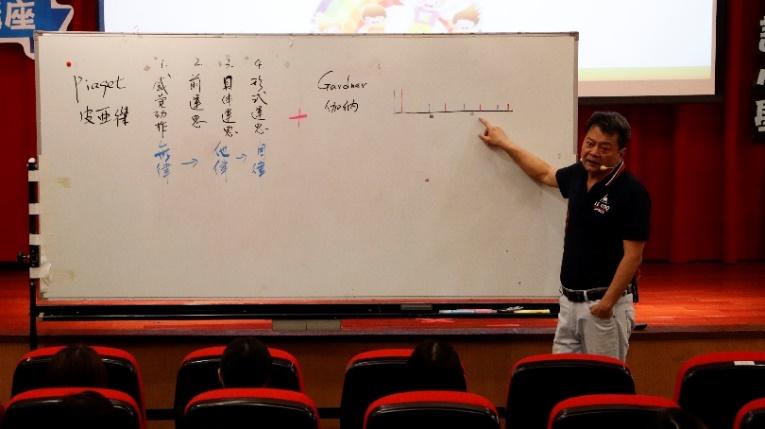 座
Piaget
皮亞傑
1. 感覺動作
2. 前運思
3. 具體運思
4. 形式運思
無律 → 他律 → 自律
+
Gardner
伽納